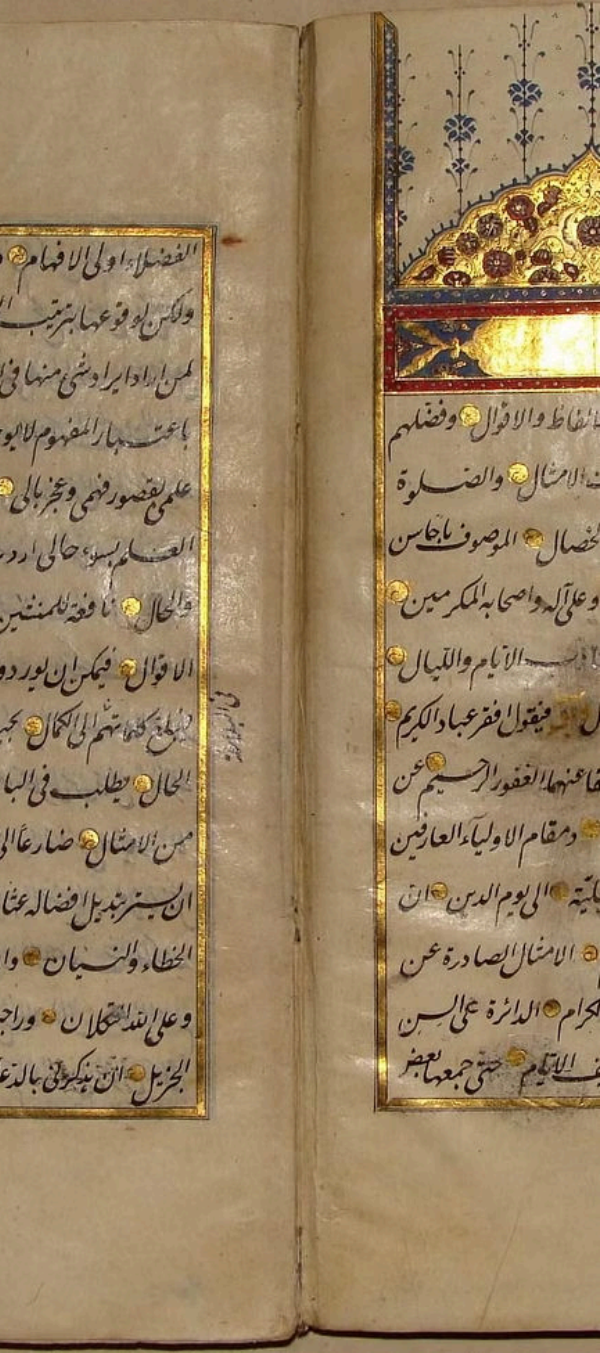 الفاظ والاقوال وفضلهم
الامثال والصلوة
الخصال الموصوف باحاسن
وعلى آله واصحابه المكرمين
الايام والليال
فيقول افقر عباد الكريم
عنهما الغفور الرحيم عن
مقام الاولياء العارفين
الى يوم الدين ان
الامثال الصادرة عن
الكرام الدائرة على السن
الايام حتى جمعها بعض
الفضلاء اولى الافهام
ولكن لوقوعها بترتيب
لمن اراد ايراد شئ منها فى
باعتبار المفهوم
علمى بقصور فهمى وعجز بالى
العلم بسوء حالى اردت
والحال نافعة للمنشئين
الاقوال فيمكن ان يورد
كلماتهم الى الكمال
الحال يطلب فى
من الامثال ضارعا الى
ان يستر بذيل افضاله
الخطاء والنسيان
وعلى الله التكلان
الجزيل ان يذكرونى